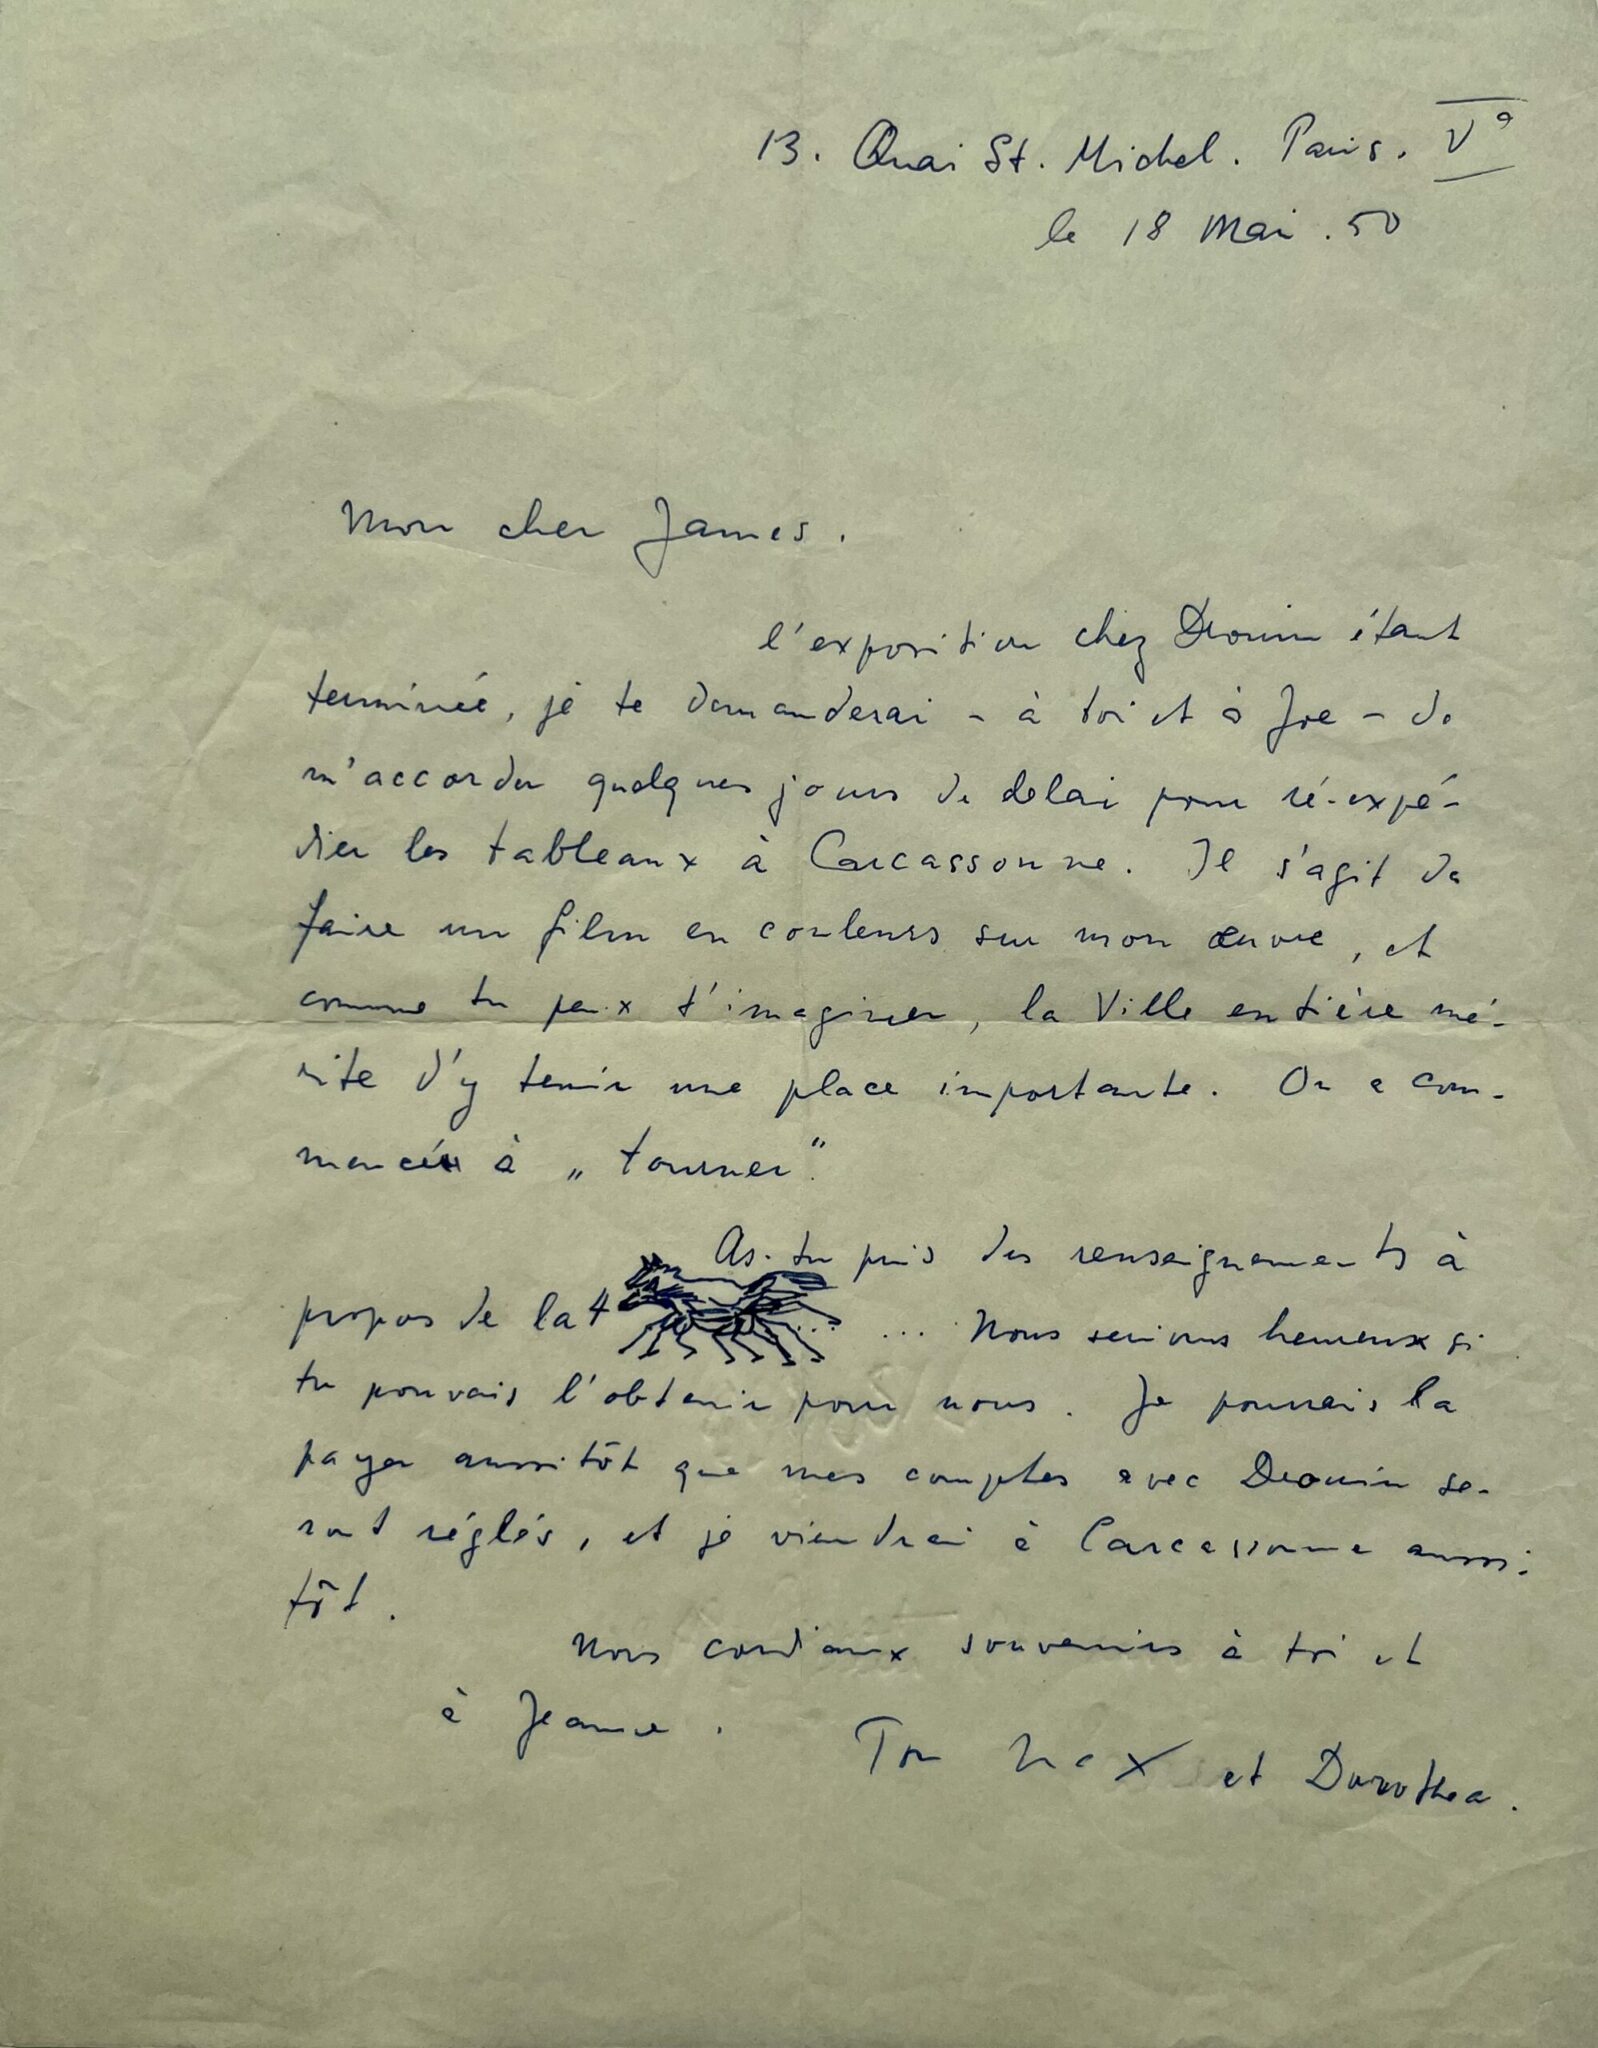 13. Quai St. Michel. Paris. Ve
le 18 Mai. 50
Mon cher James.
l'exposition chez Drouin étant
terminée, je te demanderai - à toi et à Joe - de
m'accorder quelques jours de délai pour ré-expé-
dier les tableaux à Carcassonne. Il s'agit de
faire un film en couleurs sur mon œuvre, et
comme tu peux t'imaginer, la Ville entière mé-
rite d'y tenir une place importante. On a com-
mencé à „tourner".
As-tu pris des renseignements à
propos de la 4 ... ... Nous serions heureux si
tu pouvais l'obtenir pour nous. Je pourrais la
payer aussitôt que mes comptes avec Drouin se-
ront réglés, et je viendrai à Carcassonne aussi-
tôt.
Nos cordiaux souvenirs à toi et
à Jeanne. Ton Max et Dorothea.